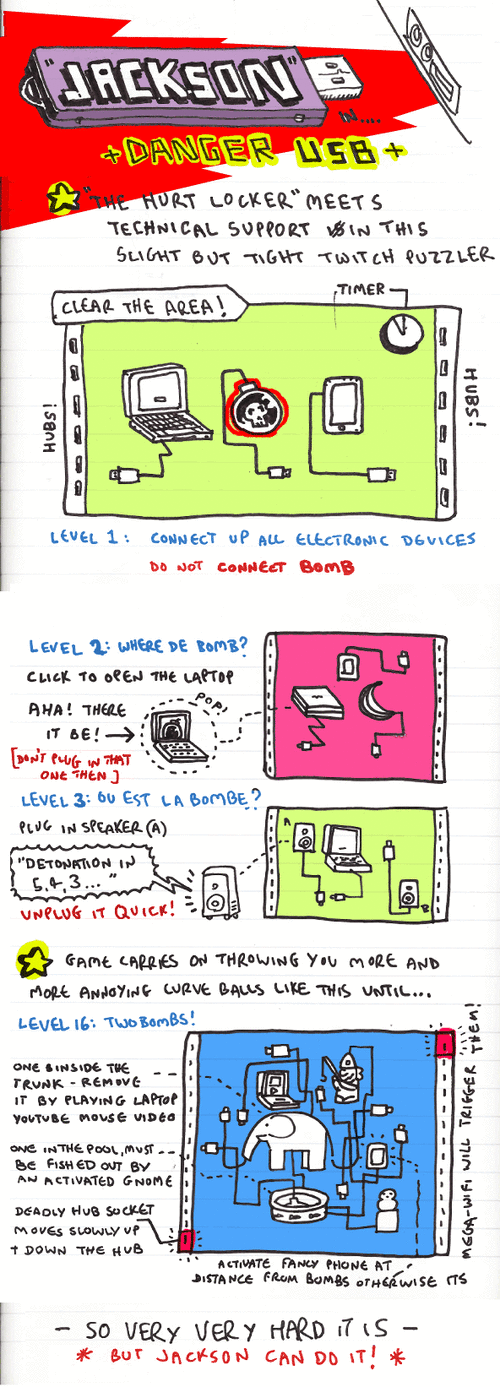 "JACKSON"
IN....
+ DANGER USB +
"THE HURT LOCKER" MEETS
TECHNICAL SUPPORT IN THIS
SLIGHT BUT TIGHT TWITCH PUZZLER
TIMER
CLEAR THE AREA!
HUBS!
HUBS!
LEVEL 1: CONNECT UP ALL ELECTRONIC DEVICES
DO NOT CONNECT BOMB
LEVEL 2: WHERE DE BOMB?
CLICK TO OPEN THE LAPTOP
POP!
AHA! THERE
IT BE!
[DON'T PLUG IN THAT
ONE THEN]
LEVEL 3: OU EST LA BOMBE?
PLUG IN SPEAKER (A)
A
"DETONATION IN
5,4,3..."
UNPLUG IT QUICK!
B
GAME CARRIES ON THROWING YOU MORE AND
MORE ANNOYING CURVE BALLS LIKE THIS UNTIL...
LEVEL 16: TWO BOMBS!
ONE INSIDE THE
TRUNK - REMOVE
IT BY PLAYING LAPTOP
YOUTUBE MOUSE VIDEO
ONE IN THE POOL, MUST
BE FISHED OUT BY
AN ACTIVATED GNOME
DEADLY HUB SOCKET
MOVES SLOWLY UP
+ DOWN THE HUB
ACTIVATE FANCY PHONE AT
DISTANCE FROM BOMBS OTHERWISE ITS
MEGA-WIFI WILL TRIGGER THEM!
- SO VERY VERY HARD IT IS -
* BUT JACKSON CAN DO IT! *